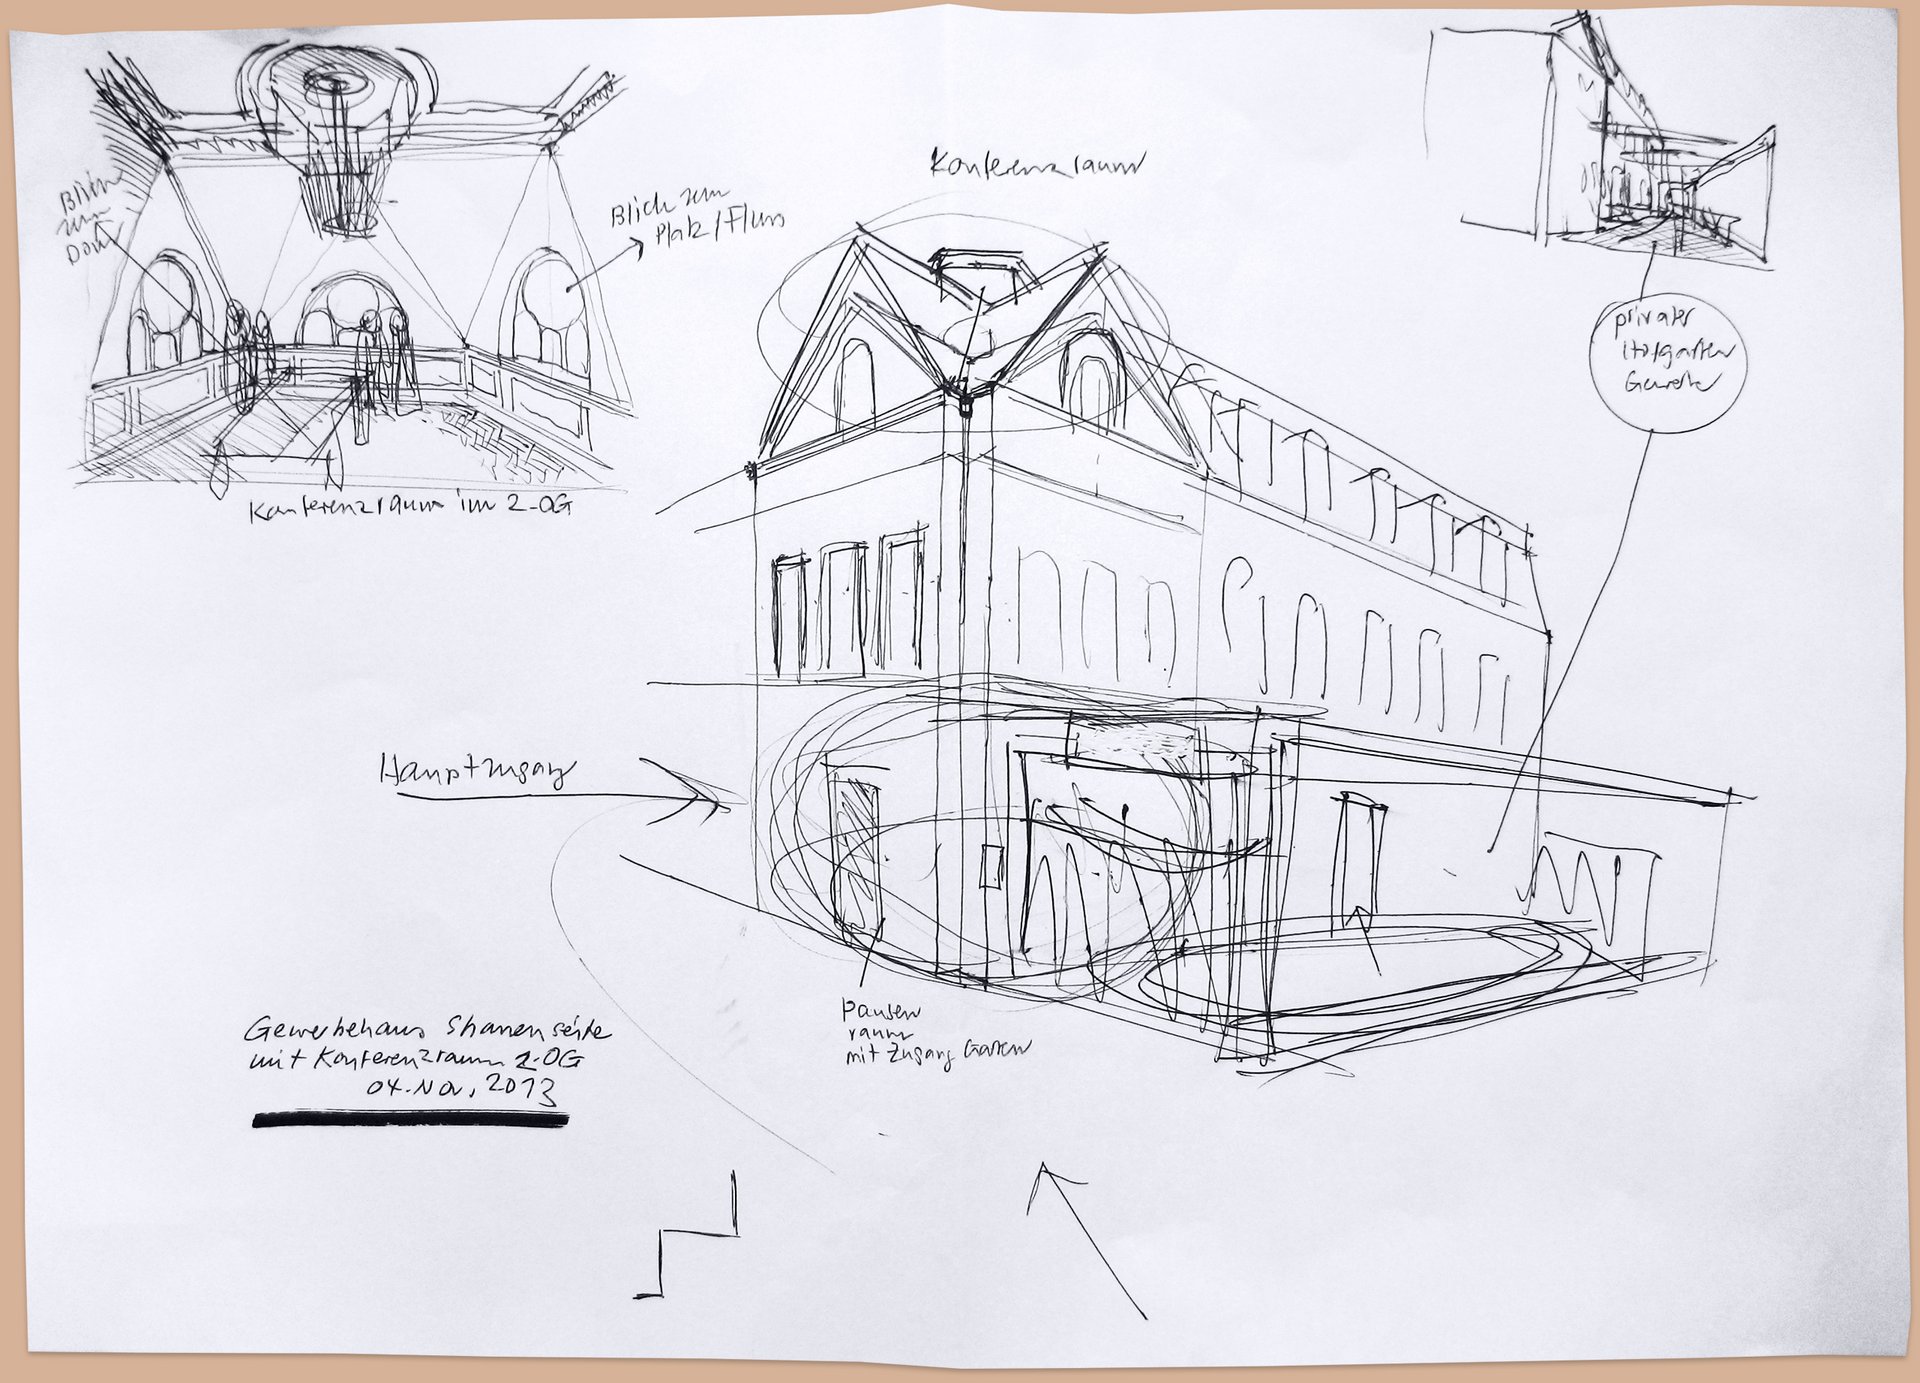 Blick
zum
Dom
Blick zum
Platz/Fluss
Konferenzraum im 2-OG
Konferenzraum
privater
Hofgarten
Gewerbe
Hauptzugang
Pausen
raum
mit Zugang Garten
Gewerbehaus
mit Konferenzraum 2-OG
04. Nov, 2013